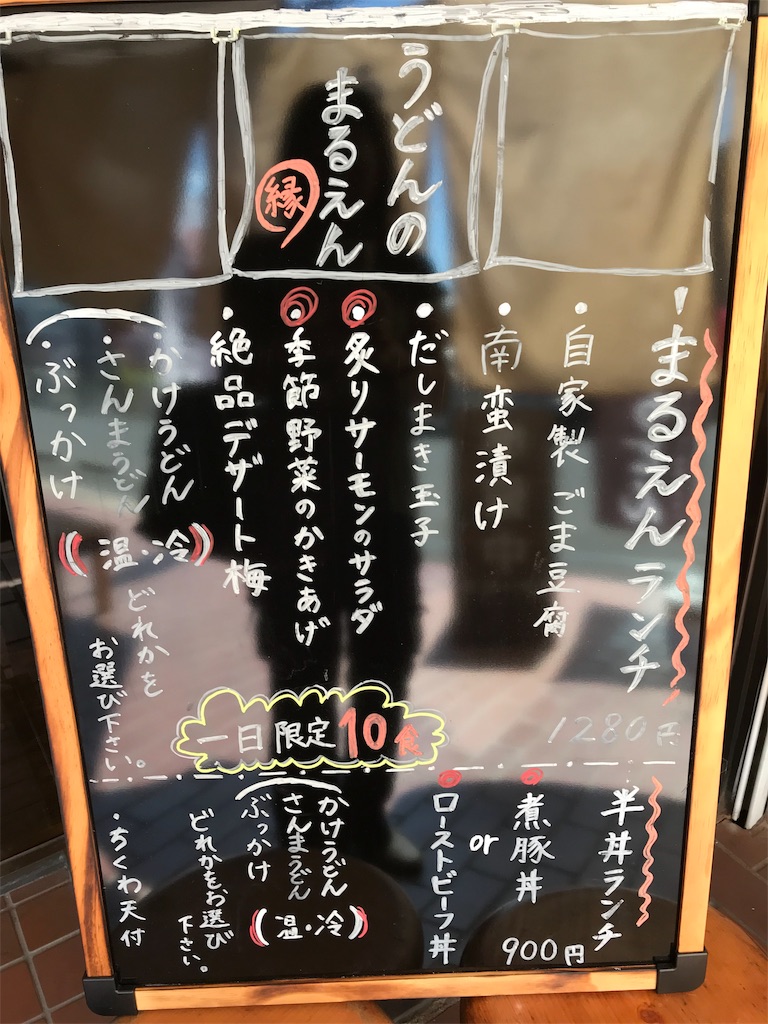 うどんの
まるえん
縁
まるえんランチ
1280円
・自家製ごま豆腐
・南蛮漬け
・だしまき玉子
・炙りサーモンのサラダ
・季節野菜のかきあげ
・絶品デザート梅
・かけうどん
・さんまうどん
・ぶっかけ
(温・冷)
どれかを
お選び下さい。
一日限定10食
半丼ランチ
900円
煮豚丼
or
ローストビーフ丼
かけうどん
さんまうどん
ぶっかけ
(温・冷)
どれかをお選び
下さい。
・ちくわ天付